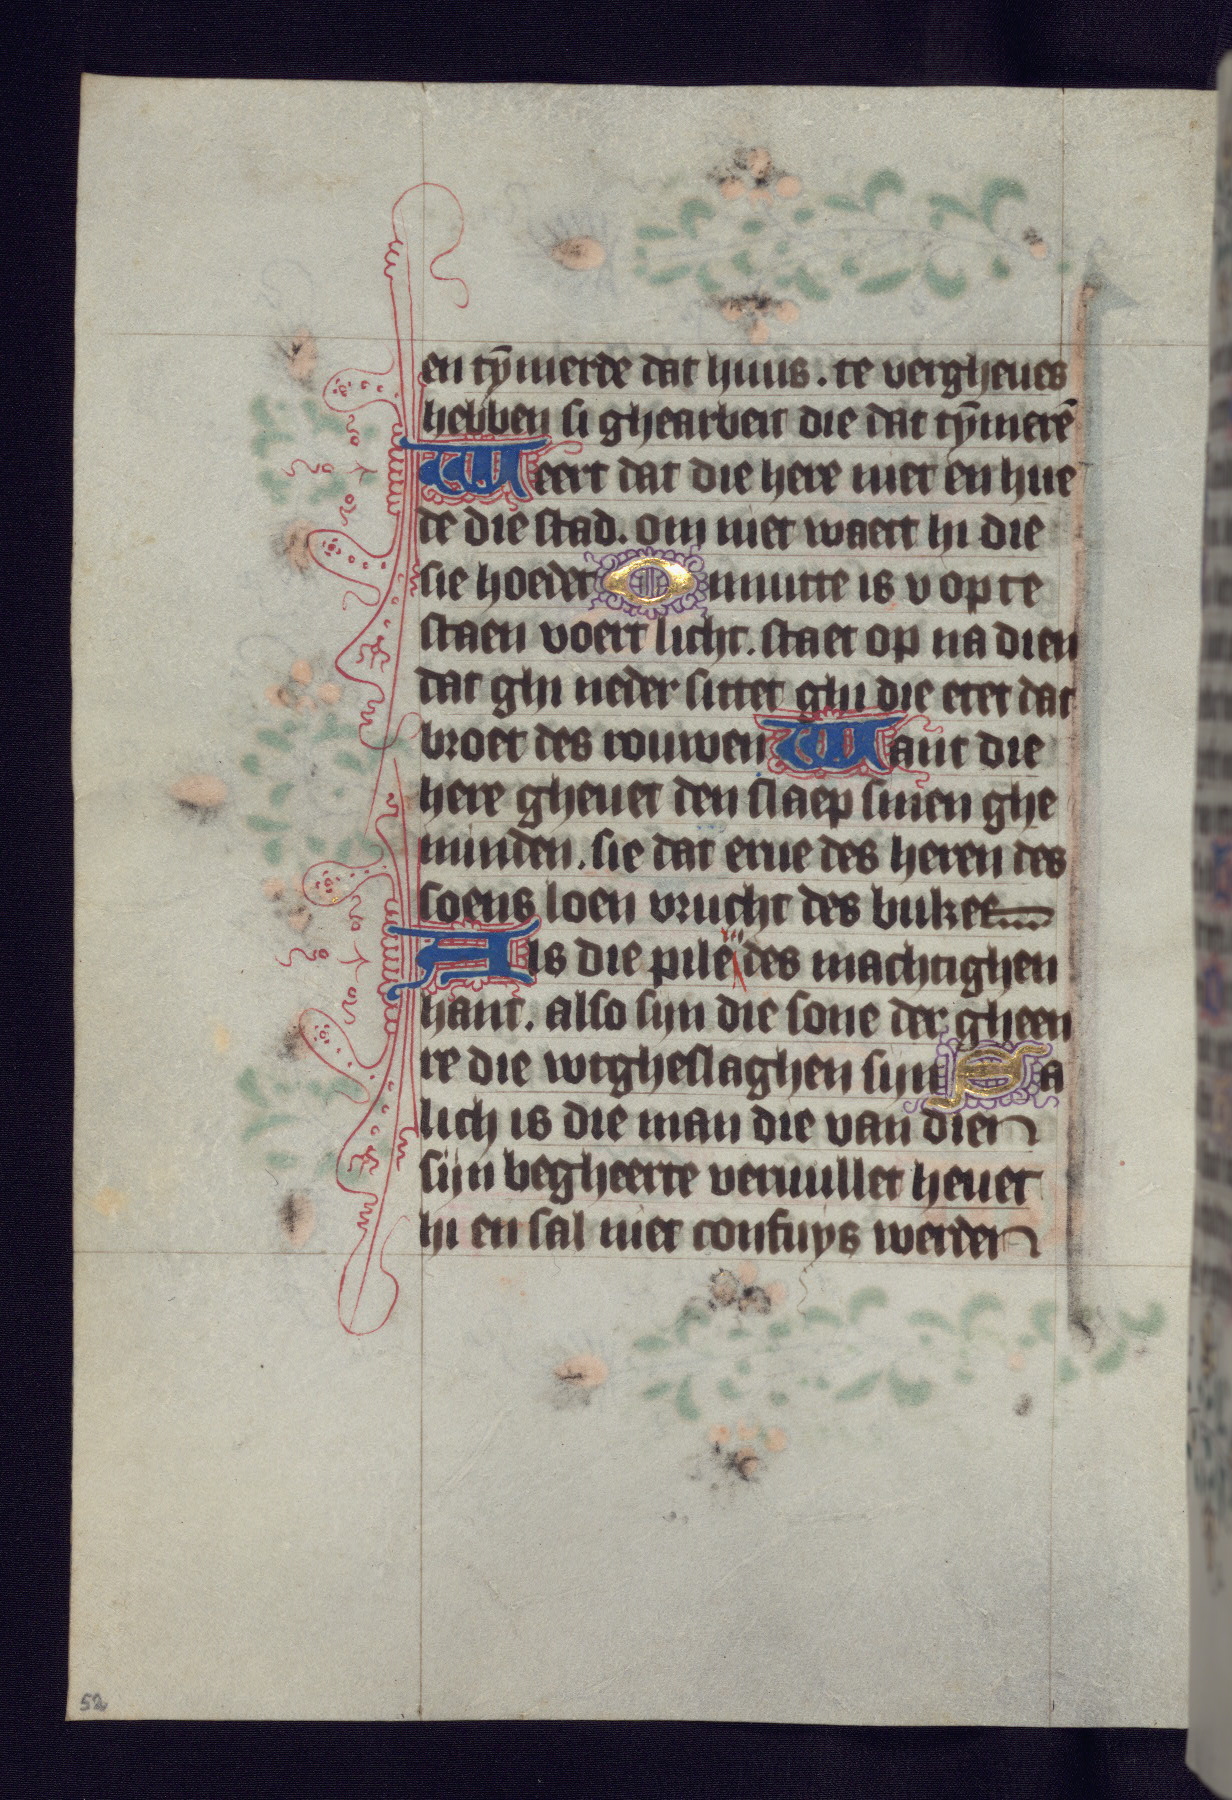 en tȳmerde dat huus. te vergheues
hebben si ghearbeit die dat tȳmerē
Weert dat die here niet en hue
de die stad. om niet waect hi die
sie hoedet Onnutte is v op te
staen voert licht. staet op na dien
dat ghi neder sittet ghi die etet dat
broet des rouwen Want die
here gheuet den slaep sinen ghe
minden. sie dat erue des heren des
soens loen vrucht des bukes
Als die pilē des machtighen
hant. also sijn die sone der gheen
re die wtgheslaghen sijn Sa
lich is die man die van dien
sijn begheerte veruullet heuet
hi en sal niet confuys werden
52